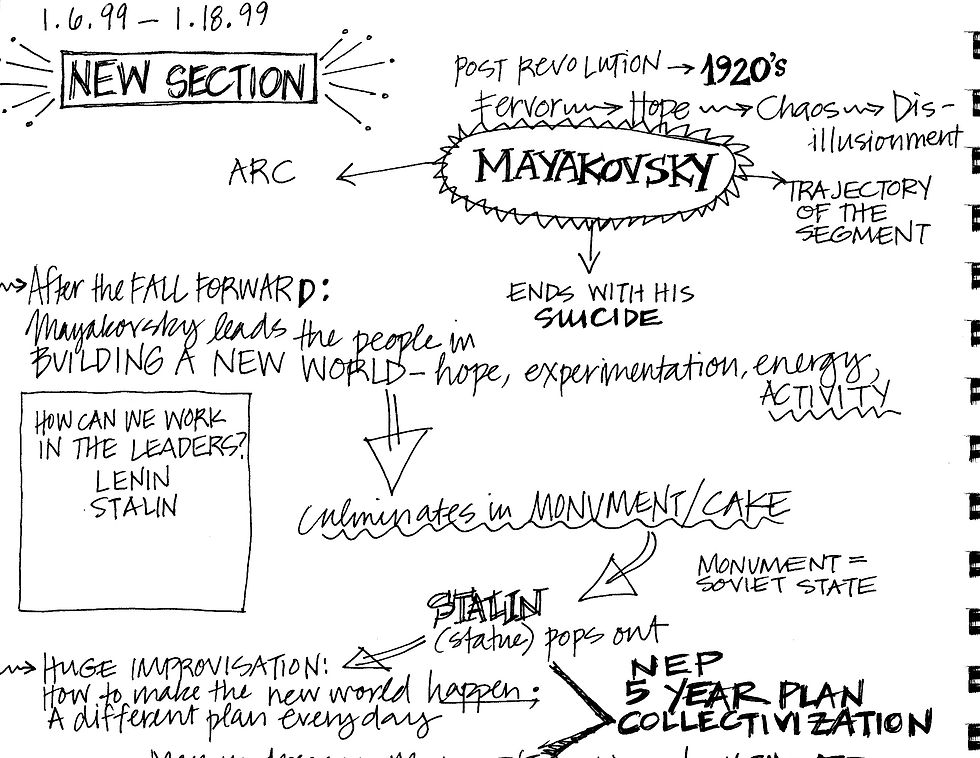 1.6.99 – 1.18.99
NEW SECTION
POST REVOLUTION → 1920's
Fervor → Hope → Chaos → Dis-
illusionment
ARC
MAYAKOVSKY
TRAJECTORY
OF THE
SEGMENT
ENDS WITH HIS
SUICIDE
After the FALL FORWARD:
Mayakovsky leads the people in
BUILDING A NEW WORLD – hope, experimentation, energy,
ACTIVITY
HOW CAN WE WORK
IN THE LEADERS?
LENIN
STALIN
culminates in MONUMENT/CAKE
MONUMENT =
SOVIET STATE
STALIN
(statue) pops out
HUGE IMPROVISATION:
How to make the new world happen:
A different plan everyday
NEP
5 YEAR PLAN
COLLECTIVIZATION